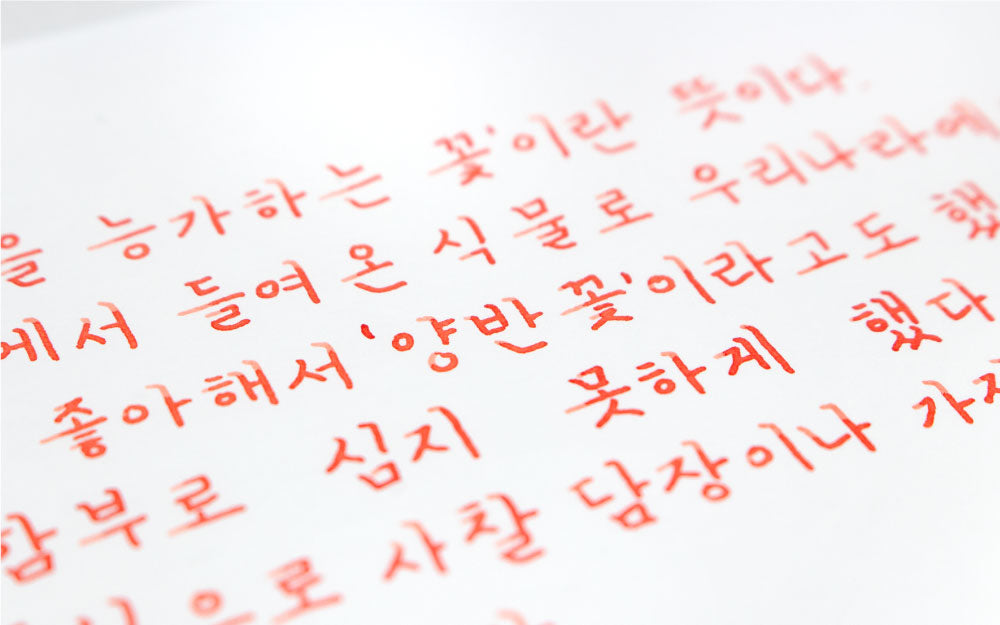 을 능가하는 꽃'이란 뜻이다.
에서 들여온 식물로 우리나라에
좋아해서 '양반꽃'이라고도 했
함부로 심지 못하게 했다
으로 사찰 담장이나